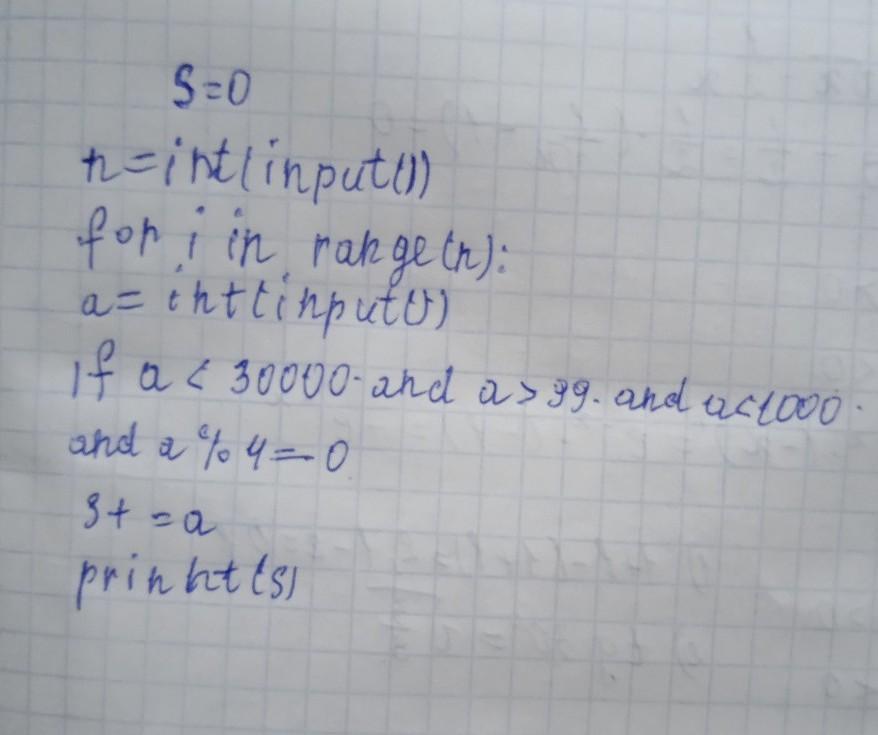 S=0
n=int(input())
for i in range(n):
a=int(input())
if a < 30000 and a > 99 and a<1000
and a % 4 == 0
S+=a
print(s)